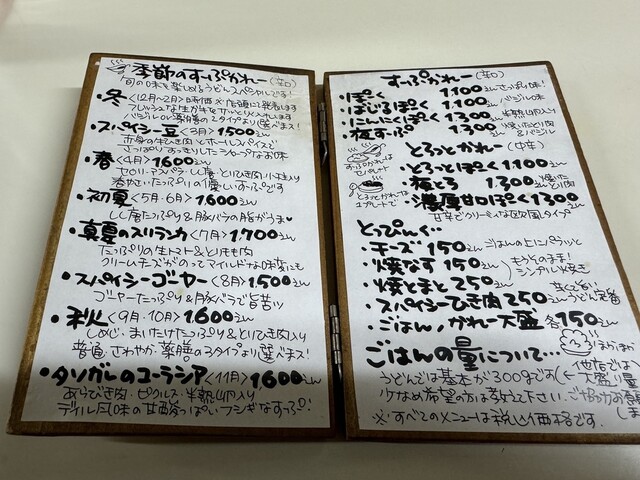 季節のすっぷかれー(辛口)
旬の味を楽しめるうどんスペシャルです!
・冬<12月〜2月>時価 ※店頭に発表します
フレッシュな生ガキを下からどり入れます
バジル or 薬膳の2タイプより選べます!
・スパイシー豆<3月>1500えん
赤身の牛ひき肉とホールスパイスで
さっぱりすっきりしたシャープなお味
・春<4月>1600えん
セロリ・アスパラ・しし唐
・初夏<5月・6月>1600えん
しし唐たっぷり&豚バラの脂がうま
・真夏のスリランカ<7月>1,700えん
たっぷりの生トマト&とりもも肉
クリームチーズがのってマイルドな味変にも
・スパイシーゴーヤー<8月>1500えん
ゴーヤーたっぷり&豚バラで旨苦ッ
・秋<9月・10月>1600えん
しめじ・まいたけたっぷり&とりひき肉入り
普通・さわやか・薬膳の3タイプより選べます!
・タソガレのユーラシア<11月>1600えん
あらびき肉・ピクルス・半熟卵入り
ディル風味の甘酸っぱいフシギなすっぷ!
すっぷかれー(辛口)
・ぽく 1100えん さっぱり味!
・ばじるぽく 1,100えん バジル味
・にんにくぽく 1300えん 半熟卵入り
・極すっぷ 1300えん 焼いたとり肉&バジル
すっぷかれーはセパレート
とろっとかれー(中辛)
・とろっとぽく 1100えん
・極とろ 1,300えん 焼いたとり肉
・濃厚甘口ぽく1300えん
とろっとかれーは1プレートで
甘辛でクリーミィな欧風タイプ
とっぴんぐ
・チーズ150えん ごはんの上にパラッと
・焼なす150えん もうそのまま!シンプル焼き
・焼とまと250えん
・スパイシーひき肉250えん
・ごはん/かれー大盛 各150えん
ほかほか
ごはんの量について…
うどんでは基本が300gです(他店では大盛り量)
少なめ希望の方は教えて下さい。
※すべてのメニューは税込価格です。